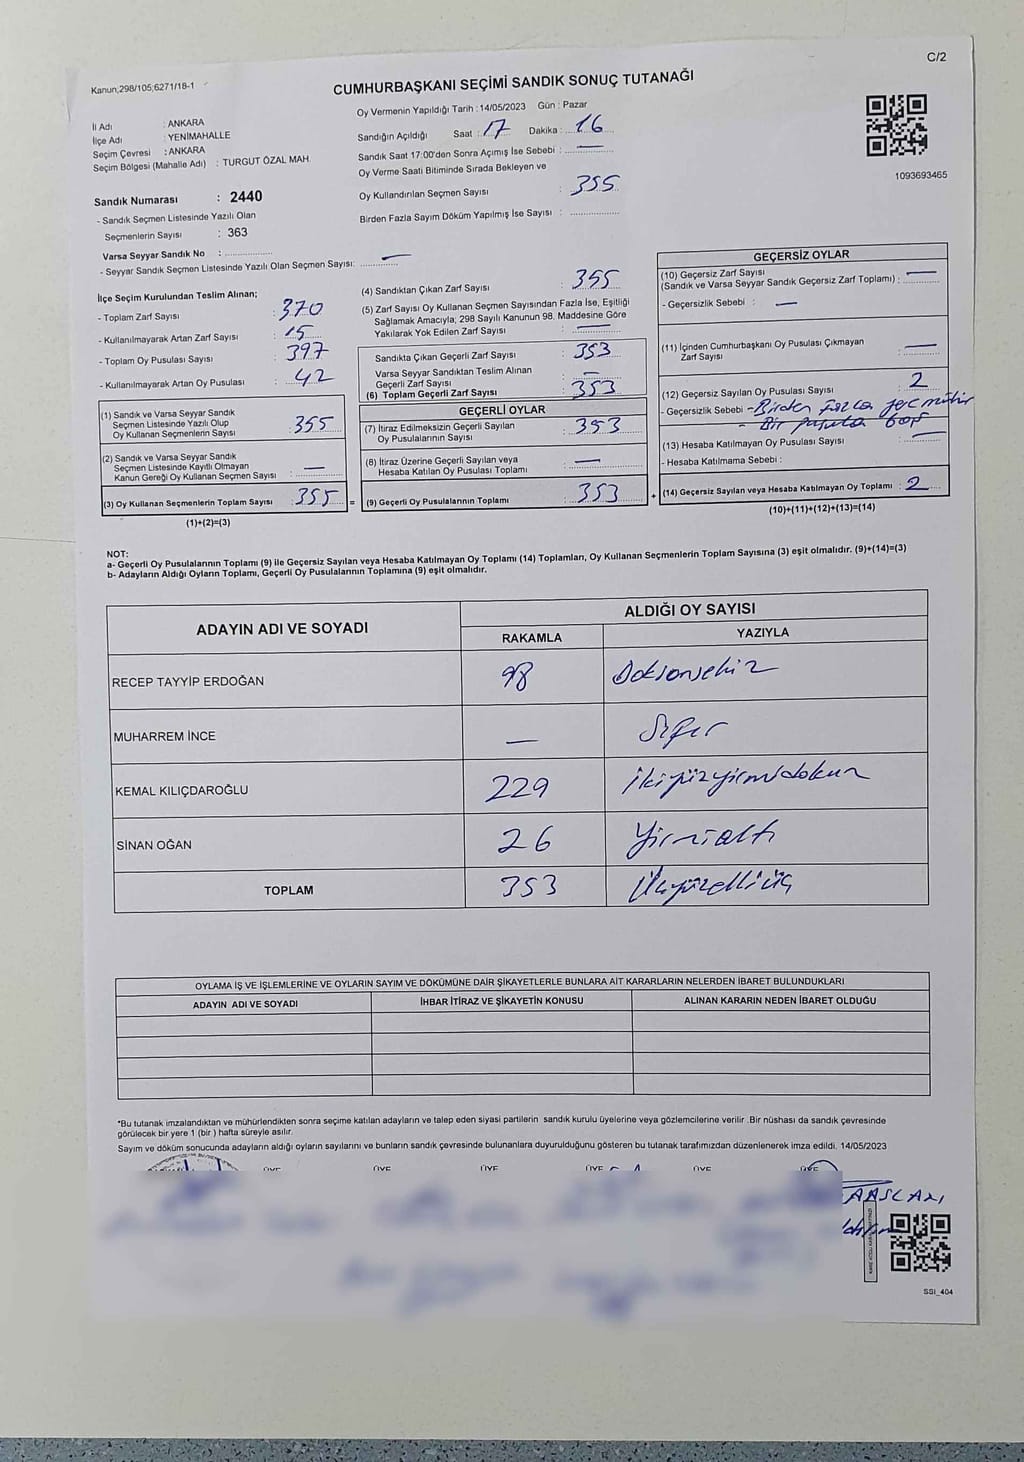 C/2
Kanun;298/105;6271/18-1
CUMHURBAŞKANI SEÇİMİ SANDIK SONUÇ TUTANAĞI
İl Adı : ANKARA
İlçe Adı : YENİMAHALLE
Seçim Çevresi : ANKARA
Seçim Bölgesi (Mahalle Adı) : TURGUT ÖZAL MAH.
Sandık Numarası : 2440
- Sandık Seçmen Listesinde Yazılı Olan
Seçmenlerin Sayısı : 363
Varsa Seyyar Sandık No :
- Seyyar Sandık Seçmen Listesinde Yazılı Olan Seçmen Sayısı: —
Oy Vermenin Yapıldığı Tarih : 14/05/2023 Gün : Pazar
Sandığın Açıldığı Saat : 17 Dakika : 16
Sandık Saat 17:00'den Sonra Açımış İse Sebebi : —
Oy Verme Saati Bitiminde Sırada Bekleyen ve
Oy Kullandırılan Seçmen Sayısı : 355
Birden Fazla Sayım Döküm Yapılmış İse Sayısı :
1093693465
İlçe Seçim Kurulundan Teslim Alınan;
- Toplam Zarf Sayısı : 370
- Kullanılmayarak Artan Zarf Sayısı : 15
- Toplam Oy Pusulası Sayısı : 397
- Kullanılmayarak Artan Oy Pusulası : 42
(1) Sandık ve Varsa Seyyar Sandık
Seçmen Listesinde Yazılı Olup
Oy Kullanan Seçmenlerin Sayısı : 355
(2) Sandık ve Varsa Seyyar Sandık
Seçmen Listesinde Kayıtlı Olmayan
Kanun Gereği Oy Kullanan Seçmen Sayısı : —
(3) Oy Kullanan Seçmenlerin Toplam Sayısı : 355 =
(1)+(2)=(3)
(4) Sandıktan Çıkan Zarf Sayısı : 355
(5) Zarf Sayısı Oy Kullanan Seçmen Sayısından Fazla İse, Eşitliği
Sağlamak Amacıyla; 298 Sayılı Kanunun 98. Maddesine Göre
Yakılarak Yok Edilen Zarf Sayısı : —
Sandıkta Çıkan Geçerli Zarf Sayısı : 353
Varsa Seyyar Sandıktan Teslim Alınan
Geçerli Zarf Sayısı : —
(6) Toplam Geçerli Zarf Sayısı : 353
GEÇERLİ OYLAR
(7) İtiraz Edilmeksizin Geçerli Sayılan
Oy Pusulalarının Sayısı : 353
(8) İtiraz Üzerine Geçerli Sayılan veya
Hesaba Katılan Oy Pusulası Toplamı : —
(9) Geçerli Oy Pusulalarının Toplamı : 353 +
GEÇERSİZ OYLAR
(10) Geçersiz Zarf Sayısı
(Sandık ve Varsa Seyyar Sandık Geçersiz Zarf Toplamı) : —
- Geçersizlik Sebebi : —
(11) İçinden Cumhurbaşkanı Oy Pusulası Çıkmayan
Zarf Sayısı : —
(12) Geçersiz Sayılan Oy Pusulası Sayısı : 2
- Geçersizlik Sebebi - Birden fazla mühür
- Bir pusula boş
(13) Hesaba Katılmayan Oy Pusulası Sayısı : —
- Hesaba Katılmama Sebebi :
(14) Geçersiz Sayılan veya Hesaba Katılmayan Oy Toplamı : 2
(10)+(11)+(12)+(13)=(14)
NOT:
a- Geçerli Oy Pusulalarının Toplamı (9) ile Geçersiz Sayılan veya Hesaba Katılmayan Oy Toplamı (14) Toplamları, Oy Kullanan Seçmenlerin Toplam Sayısına (3) eşit olmalıdır. (9)+(14)=(3)
b- Adayların Aldığı Oyların Toplamı, Geçerli Oy Pusulalarının Toplamına (9) eşit olmalıdır.
ADAYIN ADI VE SOYADI
ALDIĞI OY SAYISI
RAKAMLA YAZIYLA
RECEP TAYYİP ERDOĞAN 98 Doksansekiz
MUHARREM İNCE — Sıfır
KEMAL KILIÇDAROĞLU 229 İkiyüzyirmidokuz
SİNAN OĞAN 26 Yirmialtı
TOPLAM 353 Üçyüzelliüç
OYLAMA İŞ VE İŞLEMLERİNE VE OYLARIN SAYIM VE DÖKÜMÜNE DAİR ŞİKAYETLERLE BUNLARA AİT KARARLARIN NELERDEN İBARET BULUNDUKLARI
ADAYIN ADI VE SOYADI İHBAR İTİRAZ VE ŞİKAYETİN KONUSU ALINAN KARARIN NEDEN İBARET OLDUĞU
*Bu tutanak imzalandıktan ve mühürlendikten sonra seçime katılan adayların ve talep eden siyasi partilerin sandık kurulu üyelerine veya gözlemcilerine verilir .Bir nüshası da sandık çevresinde
görülecek bir yere 1 (bir ) hafta süreyle asılır.
Sayım ve döküm sonucunda adayların aldığı oyların sayılarını ve bunların sandık çevresinde bulunanlara duyurulduğunu gösteren bu tutanak tarafımızdan düzenlenerek imza edildi. 14/05/2023
ÜYE ÜYE ÜYE ÜYE ÜYE ÜYE
SSİ_404